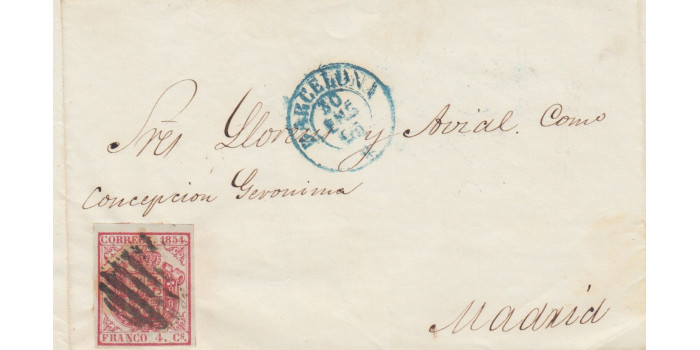 BARCELONA
30
ENE
55
Sres Llorens y Avial. Como
Concepcion Geronima
CORREOS 1854.
FRANCO 4. Cs.
Madrid